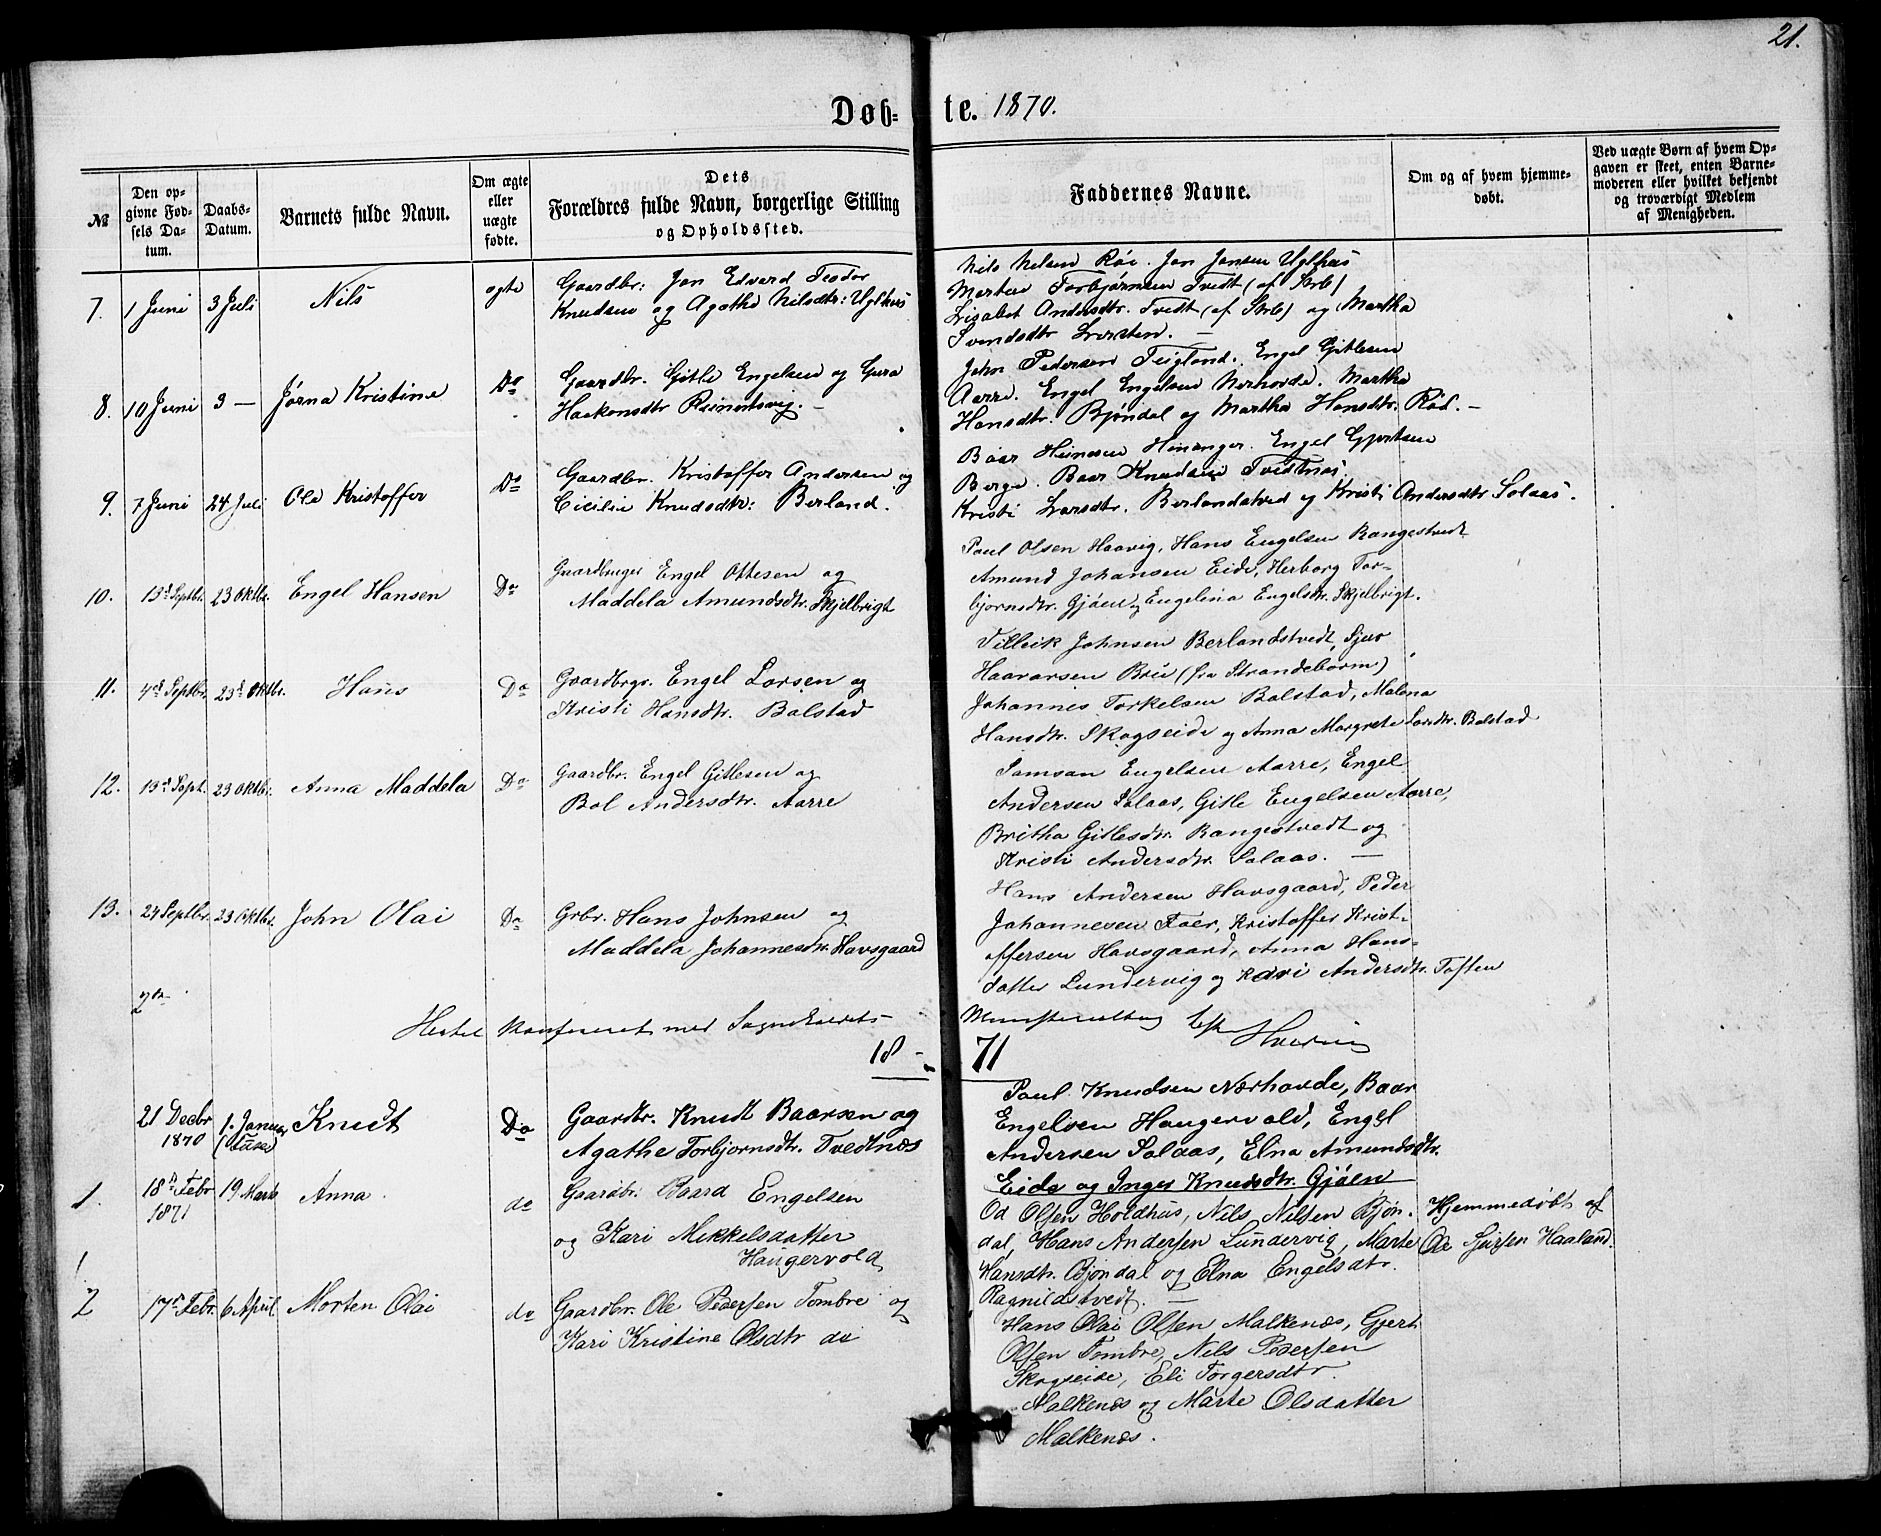 21.
Døb= te. 1870.
№
Den opgivne Fødsels Datum.
Daabs-Datum.
Barnets fulde Navn.
Om ægte eller uægte fødte.
Dets Forældres fulde Navn, borgerlige Stilling og Opholdssted.
Faddernes Navne.
Om og af hvem hjemmedøbt.
Ved uægte Børn af hvem Opgaven er skeet, enten Barnemoderen eller hvilket bekjendt og troværdigt Medlem af Menigheden.
7. 1 Juni 3 Juli Nils ægte
Gaardbr: Jon Edvard Teodor
Knudsen og Agatha Nilsdtr: Uglhus
Nils Nilsen Röe. Jon Jonsen Uglhus
Marten Torbjørnsen Tvedt (af Strb)
Lisabet Andersdtr. Tvedt (af Strb) og Martha
Svendsdtr
8. 10 Juni 3 — Jørna Kristine Do
Gaardbr. Gitle Engelsen og Gura
Haakonsdtr Reinertsvig. —
John Pedersen Teigland. Engel Gitlesen
Aarre. Engel Engelsen Nerhovde. Martha
Hansdtr. Bjøndal og Martha Hansdtr. Röd. —
9. 7 Juni 24 Juli Ole Kristoffer Do
Gaardbr. Kristoffer Andersen og
Cicilie Knudsdtr: Berland.
Baar Hinanger. Engel Gjertsen
Berge. Baar Knudsen Tveitnæs.
Kristi Larsdtr. Berlandstved og Kristi Andersdtr Solaas.
10. 13d Septbr. 23 Oktbr. Engel Hansen Do
Gaardbruger Engel Ottesen og
Maddela Amundsdtr. Skjelbrigt
Paul Olsen Haavig, Hans Engelsen Rangestvedt
Amund Johansen Eide, Herborg Tor-
bjornsdtr. Gjöen og Engelina Engelsdtr. Skjelbrigt.
11. 4d Septbr. 23d Oktbr. Hans Do
Gaardbrgr. Engel Larsen og
Kristi Hansdtr. Bolstad
Tilleik Johnsen Berlandstvedt, Sjur
Haavarsen Brü (fra Strandeborm)
Johannes Torkelsen Bolstad, Malena
Hansdtr. Skogseide og Anna Margrete Larsdtr. Bolstad
12. 13d Sept. 23 Oktbr. Anna Maddela Do
Gaardbr. Engel Gitlesen og
Bol Andersdtr. Aarre
Samson Engelsen Aarre, Engel
Andersen Solaas, Gitle Engelsen Aarre,
Britha Gitlesdtr. Rangestvedt og
Kristi Andersdtr. Solaas. —
13. 24 Septbr. 23 Oktbr. John Olai Do
Grbr. Hans Johnsen og
Maddela Johannesdtr. Havsgaard
Hans Andersen Havsgaard, Peder
Johannesen Foer, Kristoffer Krist-
offersen Havsgaard, Anna Hans-
datter Lundervig og Kari Andersdtr. Toften
Hertil konfereret med Sognekaldets Ministerialbog
18 - 71
21 Decbr 1870 1. Januar Knudt Do
Gaardbr. Knudt Baarsen og
Agathe Torbjornsdtr. Tvedtnæs
Paul Knudsen Nærhovde, Baar
Engelsen Haugervold, Engel
Andersen Solaas, Elna Amundsdtr.
Eide og Inger Knudsdtr. Gjöen
1. 18d Febr 1871 19 Marts Anna do
Gaardbr. Baard Engelsen
og Kari Mikkelsdatter
Haugervold
Od Olsen Holdhus, Nils Nilsen Bjøn-
dal, Hans Andersen Lundervig, Marte
Hansdtr. Bjøndal og Elna Engelsdtr.
Ragnildstvedt. —
Hjemmedøbt af
Ole Sjursen Haaland.
1
2 17d Febr. 6 April. Morten Olai do
Gaardbr. Ole Pedersen Tombre og
Kari Kristine Olsdtr do
Hans Olai Olsen Malkenæs, Gjert
Olsen Tombre, Nils Pedersen
Skogseide, Eli Torgersdtr.
Malkenæs og Marte Olsdatter
Malkenæs.